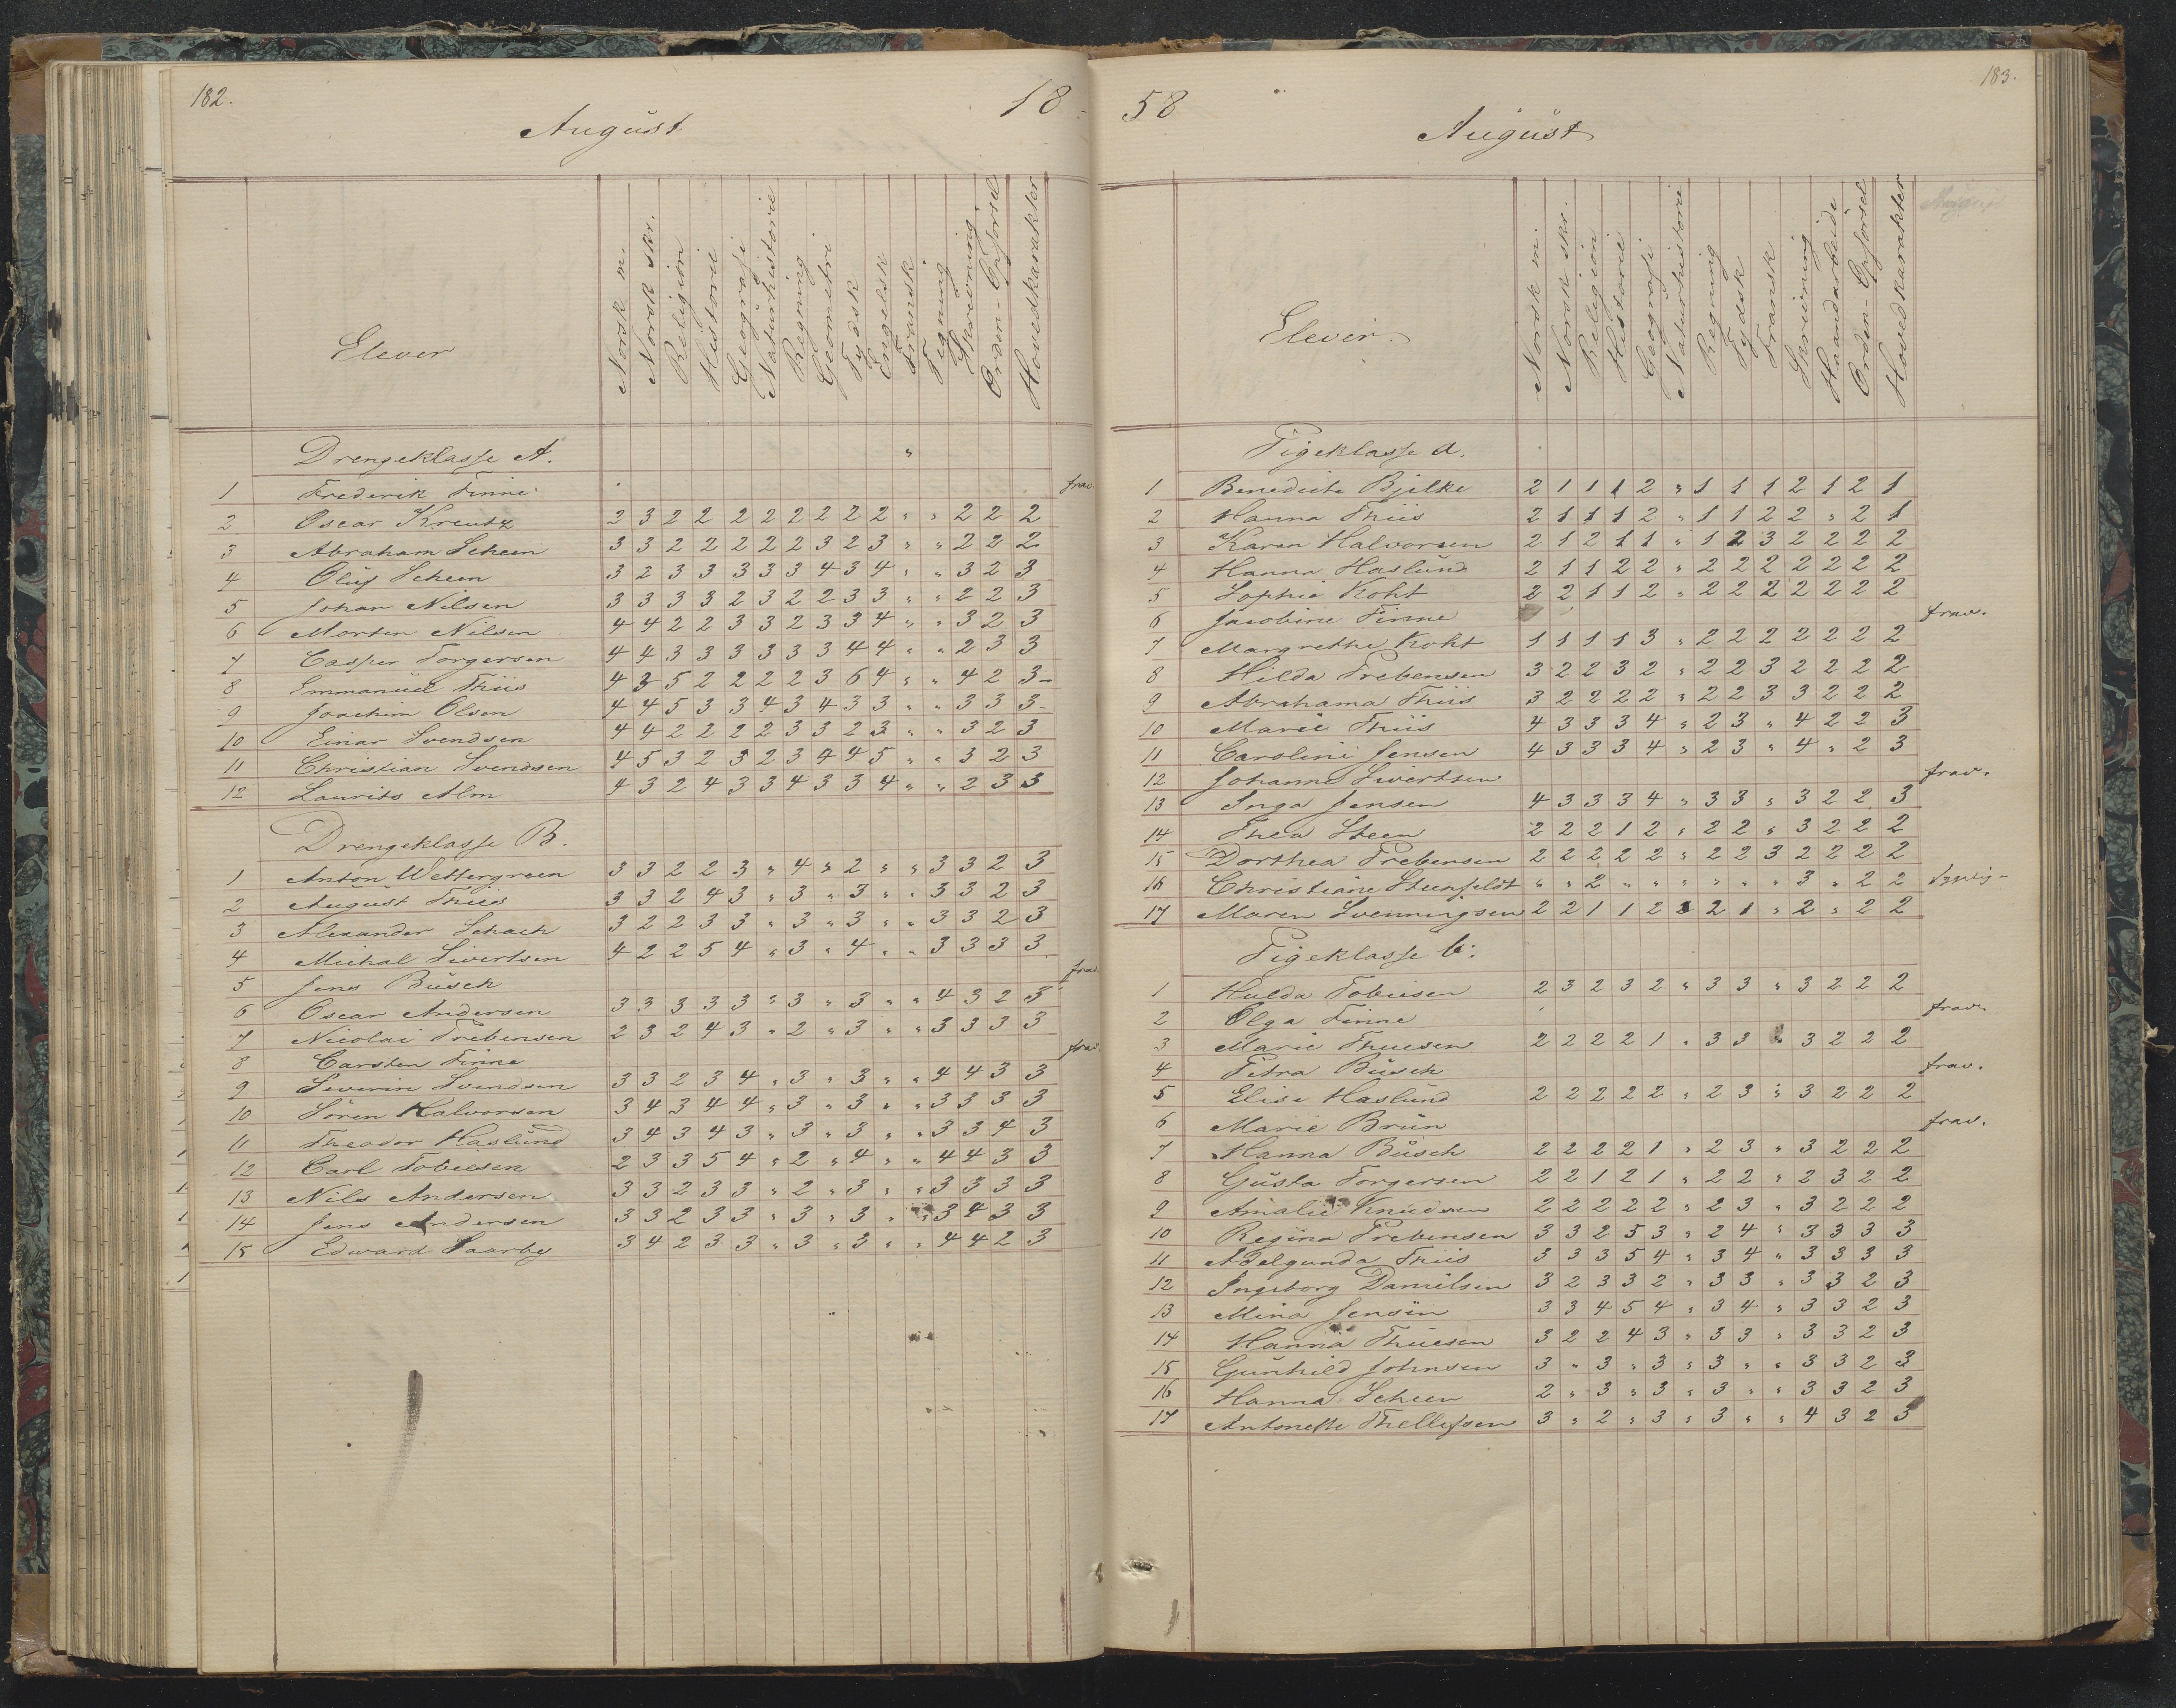 182.
August
18
Elever
Norsk m.
Norsk skr.
Religion
Historie
Geografi
Naturhistorie
Regning
Geometri
Tydsk
Engelsk
Fransk
Tegning
Skrivning
Orden-Opførsel
Hovedkarakter
Drengeklasse A. "
1 Frederik Finne frav.
2 Oscar Kreutz 2 3 2 2 2 2 2 2 2 2 " " 2 2 2
3 Abraham Scheen 3 3 2 2 2 2 2 3 2 3 " " 2 2 2
4 Oluf Scheen 3 2 3 3 3 3 3 4 3 4 " " 3 2 3
5 Johan Nilsen 3 3 3 3 2 3 2 2 3 3 " " 2 2 3
6 Morten Nilsen 4 4 2 2 3 3 2 3 3 4 " " 3 2 3
7 Casper Torgersen 4 4 3 3 3 3 3 3 4 4 " " 2 3 3
8 Emmanuel Thiis 4 3 5 2 2 2 2 3 6 4 " " 4 2 3-
9 Joachim Olsen 4 4 5 3 3 4 3 4 3 3 " " 3 3 3-
10 Einar Svendsen 4 4 2 2 2 2 3 3 2 3 " " 3 2 3
11 Christian Svendsen 4 5 3 2 3 2 3 4 4 5 " " 3 2 3
12 Laurits Alm 4 3 2 4 3 3 4 3 3 4 " " 2 3 3
Drengeklasse B.
1 Anton Wettergreen 3 3 2 2 3 " 4 " 2 " " 3 3 2 3
2 August Thiis 3 3 2 4 3 " 3 " 3 " " 3 3 2 3
3 Alexander Schach 3 2 2 3 3 " 3 " 3 " " 3 3 2 3
4 Michal Sivertsen 4 2 2 5 4 " 3 " 4 " " 3 3 3 3
5 Jens Büsch frav.
6 Oscar Andersen 3 3 3 3 3 " 3 " 3 " " 4 3 2 3
7 Nicolai Prebensen 2 3 2 4 3 " 2 " 3 " " 3 3 3 3
8 Carsten Finne frav
9 Severin Svendsen 3 3 2 3 4 " 3 " 3 " " 4 4 3 3
10 Sören Halvorsen 3 4 3 4 4 " 3 " 3 " " 3 3 3 3
11 Theodor Haslund 3 4 3 4 3 " 3 " 3 " " 3 3 4 3
12 Carl Tobiesen 2 3 3 5 4 " 2 " 4 " " 4 4 3 3
13 Nils Andersen 3 3 2 3 3 " 2 " 3 " " 3 3 3 3
14 Jens Andersen 3 3 2 3 3 " 3 " 3 " " 3 4 3 3
15 Edward Saarby 3 4 2 3 3 " 3 " 3 " " 4 4 2 3
183.
58
August
Elever.
Norsk m.
Norsk skr.
Religion
Historie
Geografi
Naturhistorie
Regning
Tydsk
Fransk
Skrivning
Haandarbeide
Orden-Opførsel
Hovedkarakter
Pigeklasse A.
1 Benedicte Bjelke 2 1 1 1 2 " 1 1 1 2 1 2 1
2 Hanna Thiis 2 1 1 1 2 " 1 1 2 2 " 2 1
3 Karen Halvorsen 2 1 2 1 1 " 1 2 3 2 2 2 2
4 Hanna Haslund 2 1 1 2 2 " 2 2 2 2 2 2 2
5 Sophie Koht 2 2 1 1 2 " 2 2 2 2 2 2 2
6 Jacobine Finne frav.
7 Margrethe Koht 1 1 1 1 3 " 2 2 2 2 2 2 2
8 Hilda Prebensen 3 2 2 3 2 " 2 2 3 2 2 2 2
9 Abrahama Thiis 3 2 2 2 2 " 2 2 3 3 2 2 2
10 Marie Thiis 4 3 3 3 4 " 2 3 " 4 2 2 3
11 Caroline Jensen 4 3 3 3 4 " 2 3 " 4 " 2 3
12 Johanne Sivertsen frav.
13 Inga Jensen 4 3 3 3 4 " 3 3 " 3 2 2 3
14 Thea Steen 2 2 2 1 2 " 2 2 " 3 2 2 2
15 Dorthea Prebensen 2 2 2 2 2 " 2 2 3 2 2 2 2
16 Christiane Steenfeldt " " 2 " " " " " " 3 " 2 2
17 Maren Svenningsen 2 2 1 1 2 3 2 1 " 2 " 2 2
Pigeklasse b.
1 Hulda Tobiesen 2 3 2 3 2 " 3 3 " 3 2 2 2
2 Olga Finne frav.
3 Marie Thuesen 2 2 2 2 1 " 3 3 " 3 2 2 2
4 Petra Büsch frav.
5 Elise Haslund 2 2 2 2 2 " 2 3 " 3 2 2 2
6 Marie Brün frav.
7 Hanna Büsch 2 2 2 2 1 " 2 3 " 3 2 2 2
8 Gusta Torgersen 2 2 1 2 1 " 2 2 " 2 3 2 2
9 Amalie Knudsen 2 2 2 2 2 " 2 3 " 3 2 2 2
10 Regina Prebensen 3 3 2 5 3 " 2 4 " 3 3 3 3
11 Adelgunda Thiis 3 3 3 5 4 " 3 4 " 3 3 3 3
12 Ingeborg Danielsen 3 2 3 3 2 " 3 3 " 3 3 2 3
13 Mina Jensen 3 3 4 5 4 " 3 4 " 3 3 2 3
14 Hanna Thuesen 3 2 2 4 3 " 3 3 " 3 3 2 3
15 Gunhild Johnsen 3 " 3 " 3 " 3 " " 3 3 2 3
16 Hanna Scheen 2 " 3 " 3 " 3 " " 3 3 2 3
17 Antonette Thellefsen 3 " 2 " 3 " 3 " " 4 3 2 3